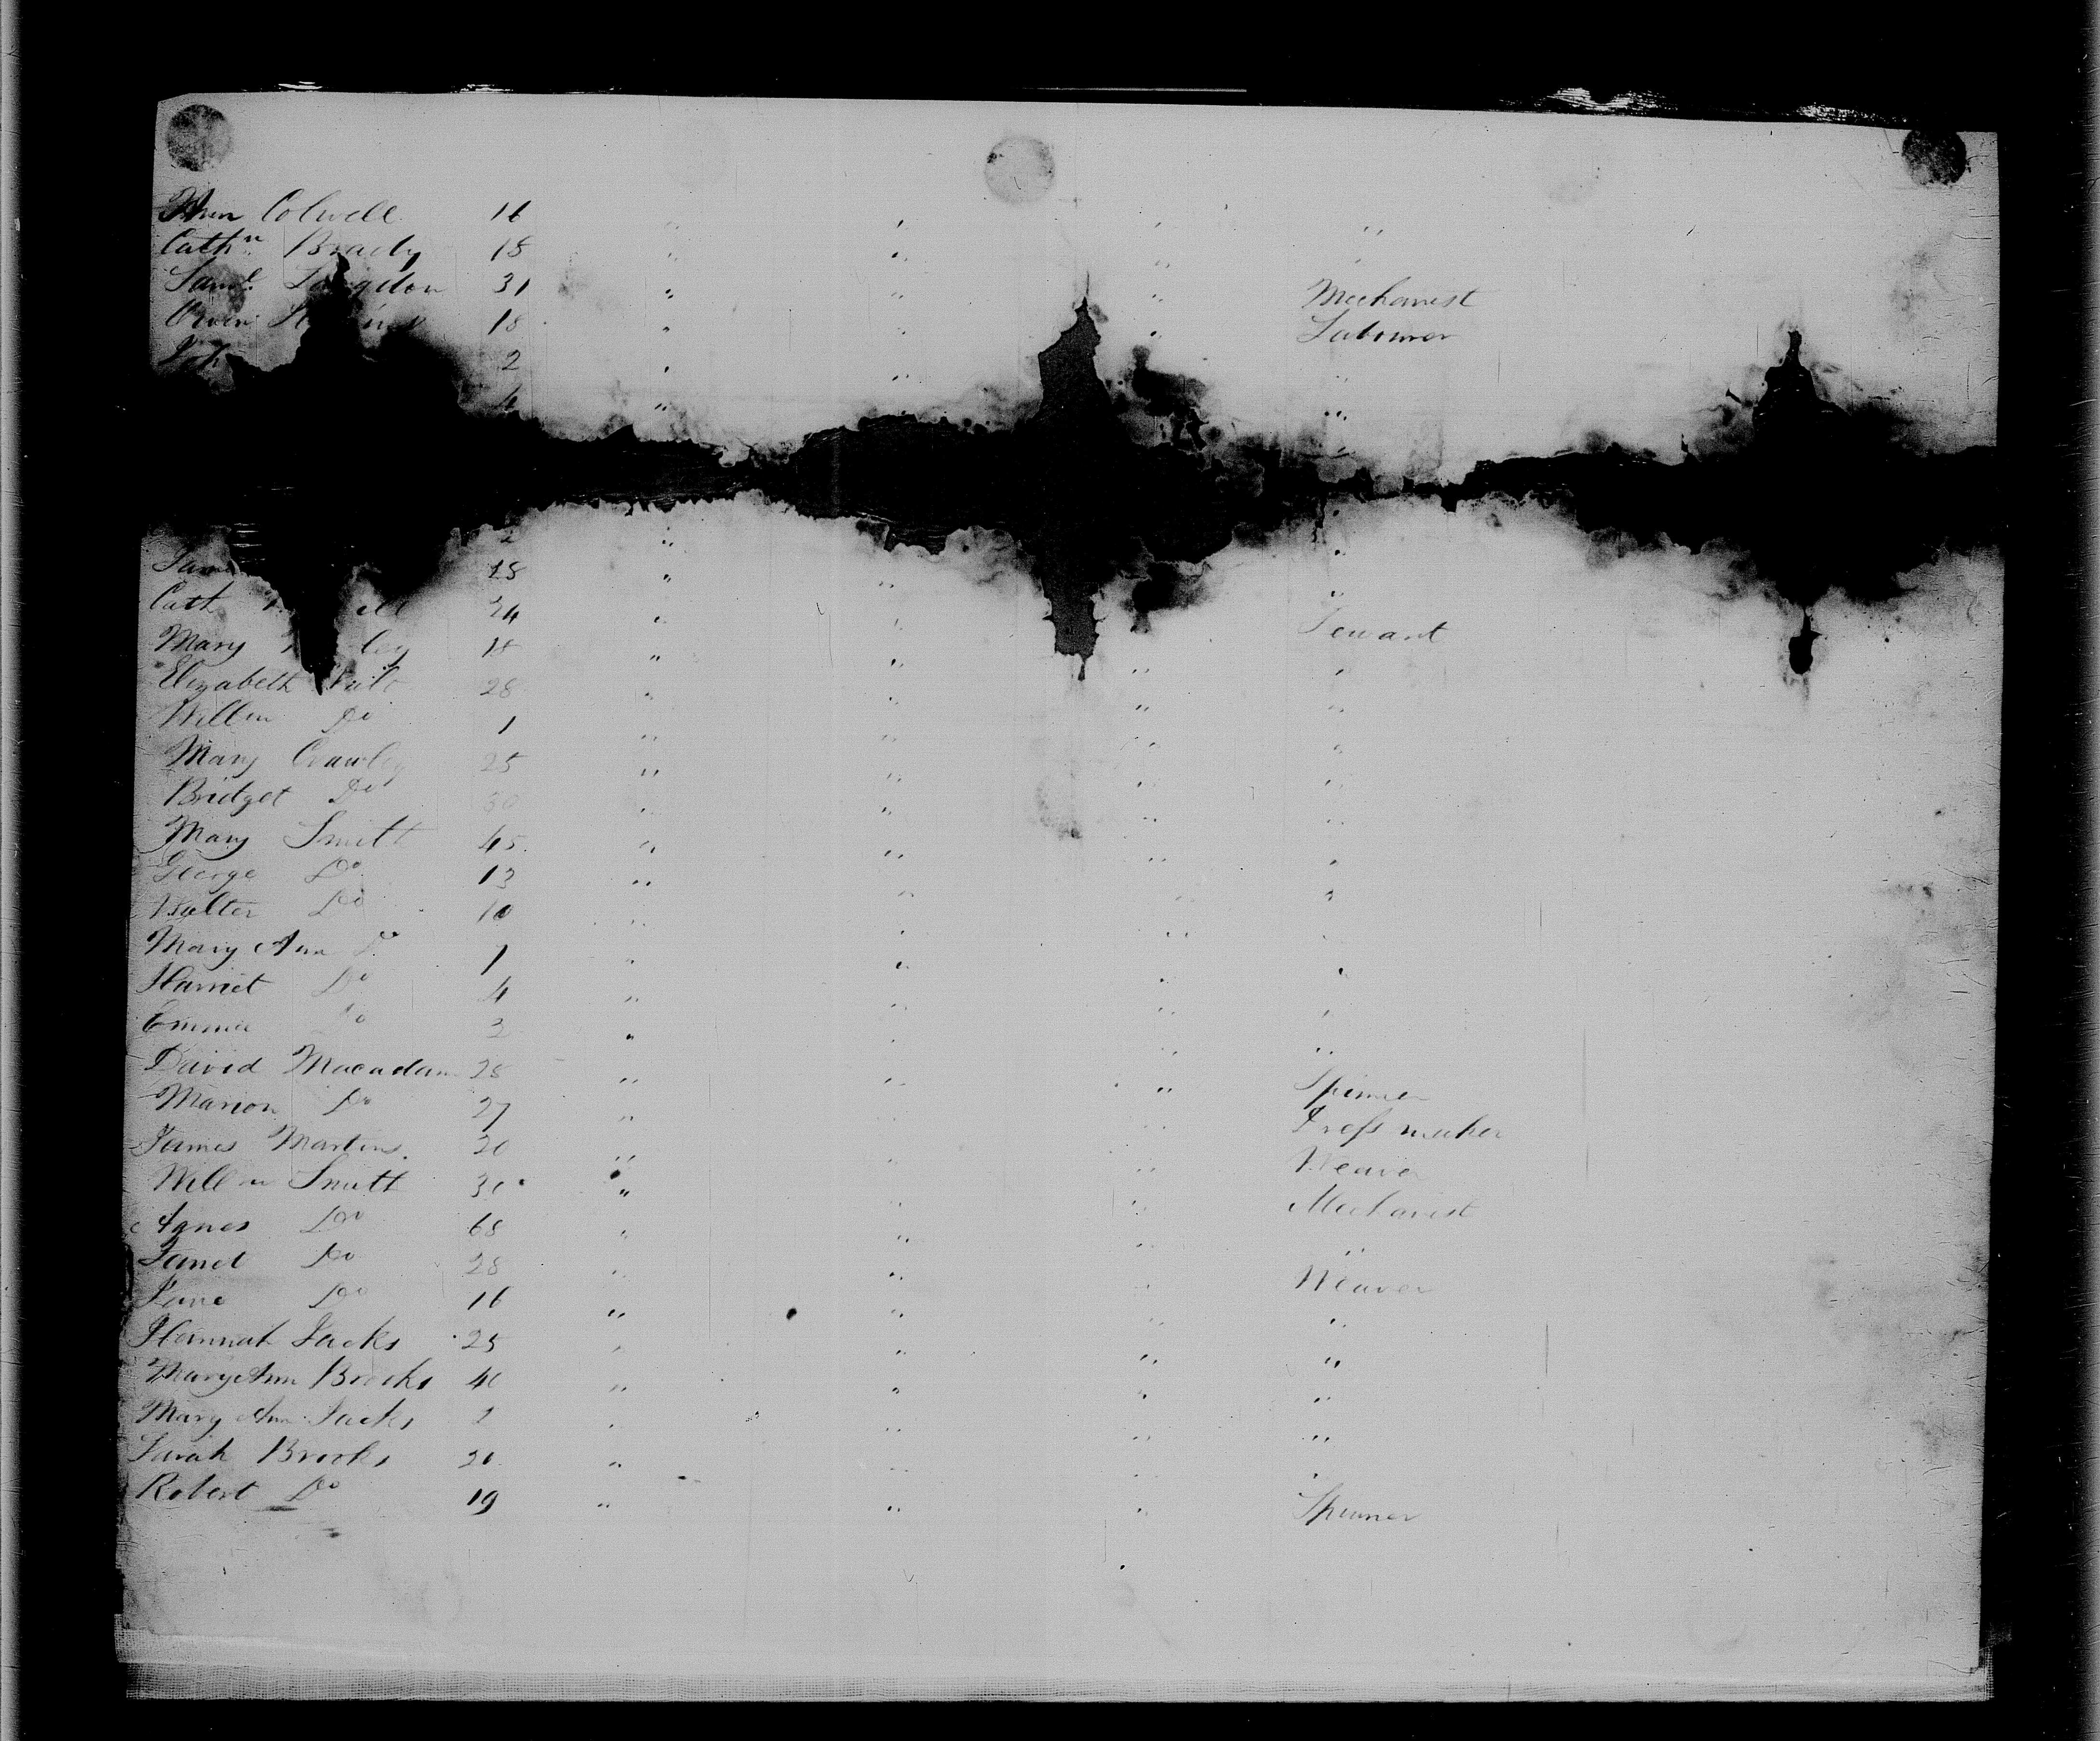 Colwell 16 " " " "
Cathn Brady 18 " " " "
Saml Langdon 31 " " " Mechanist
Owen 18 " " " Labourer
Joh 2 " " "
4 " "
2 " "
Jam 18 " " "
Cath 24 " " Servant
Mary ley 18 " " " "
Elizabeth 28 " " " "
Willm Do 1 " " " "
Mary Crawley 25 " " " "
Bridget Do 30 " " " "
Mary Smith 45 " " " "
George Do 13 " " " "
Walter Do 10 " " " "
Mary Ann Do 1 " " " "
Harriet Do 4 " " " "
Emma Do 2 " " " "
David Macadam 28 " " " Spinner
Marion Do 27 " " Dress maker
James Martins 20 " " " Weaver
Willm Smith 30 " " " Mechanist
Agnes Do 68 " " " "
Janet Do 28 " " " Weaver
Jane Do 16 " " " "
Hannah Jacks 25 " " " "
Mary Ann Brooks 40 " " " "
Mary Ann Jacks 2 " " " "
Sarah Brooks 20 " " " "
Robert Do 19 " " " Spinner